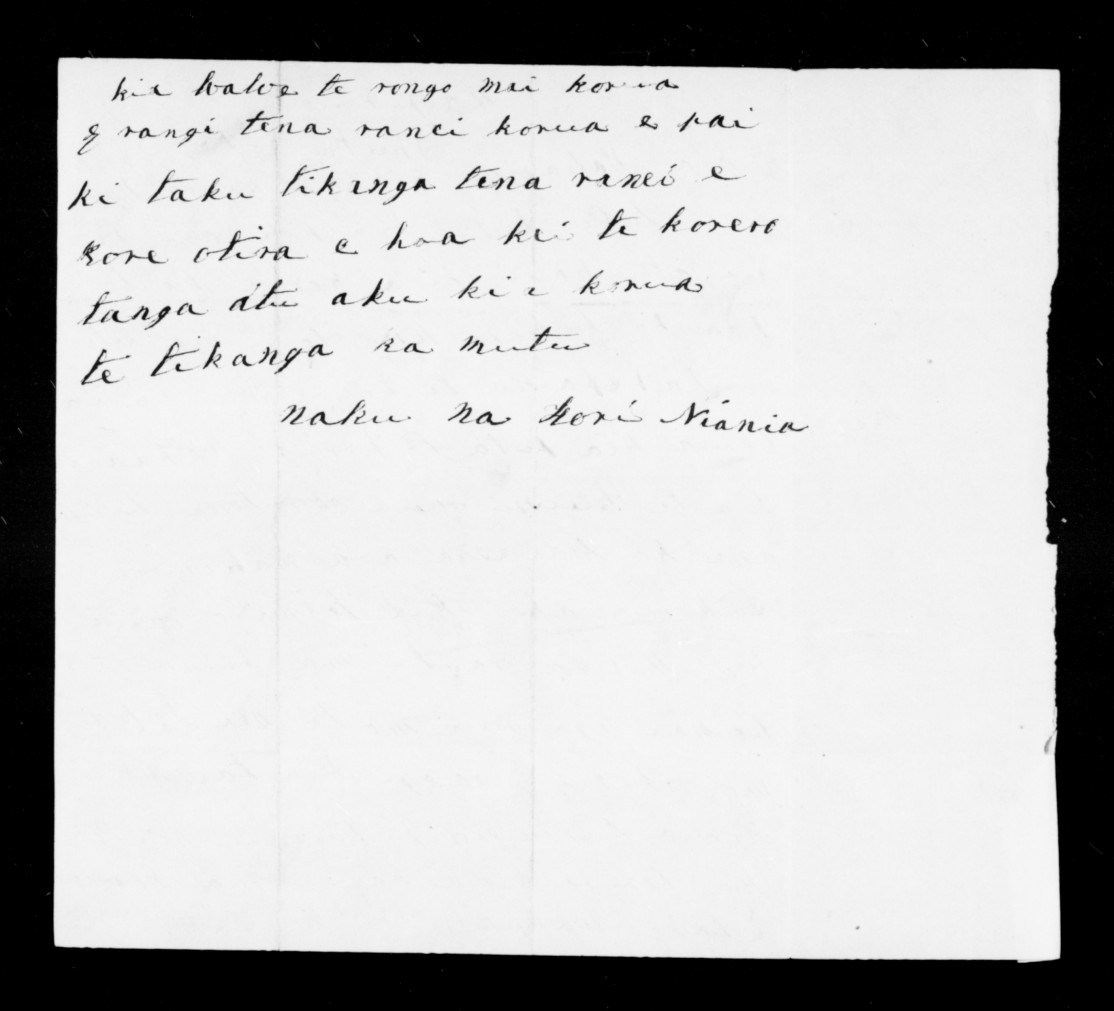 kia wawe te rongo mai korua
E rangi tena ranei korua e pai
ki taku tikanga tena ranei e
kore otira e hoa kei te korero
tanga atu aku kia korua
te tikanga ka mutu
naku na Hori Niania